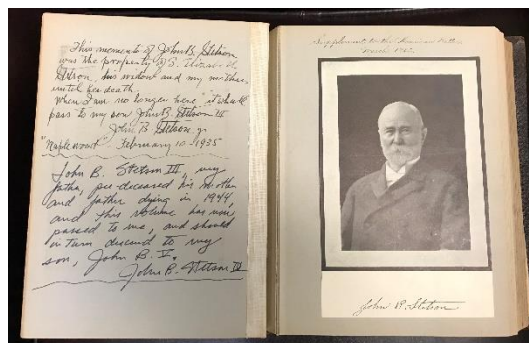 This memento of John B. Stetson
was the property of S. Elizabeth
Stetson, his widow and my mother,
until her death.
When I am no longer here it should
pass to my son John B. Stetson III
John B. Stetson, Jr.
"Maplewood" February 10 - 1935
John B. Stetson III, my
father, pre-deceased his mother
and father dying in 1944,
and this volume has now
passed to me, and should
in turn descend to my
son, John B. V.
John B. Stetson IV
Supplement to the American Hatter
March
John B. Stetson